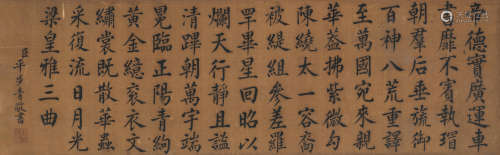 帝德實廣運車
書靡不賓執瑁
朝羣后垂旒御
百神八荒重譯
至萬國宛來親
華葢拂紫微勾
陳繞太一容裔
被緹組參差羅
罕畢星回昭以
爛天行靜且謐
清蹕朝萬宇端
冕臨正陽青絇
黃金繶袞衣文
繡裳既散華蟲
采復流日月光
梁皇雅三曲
臣平步青敬書